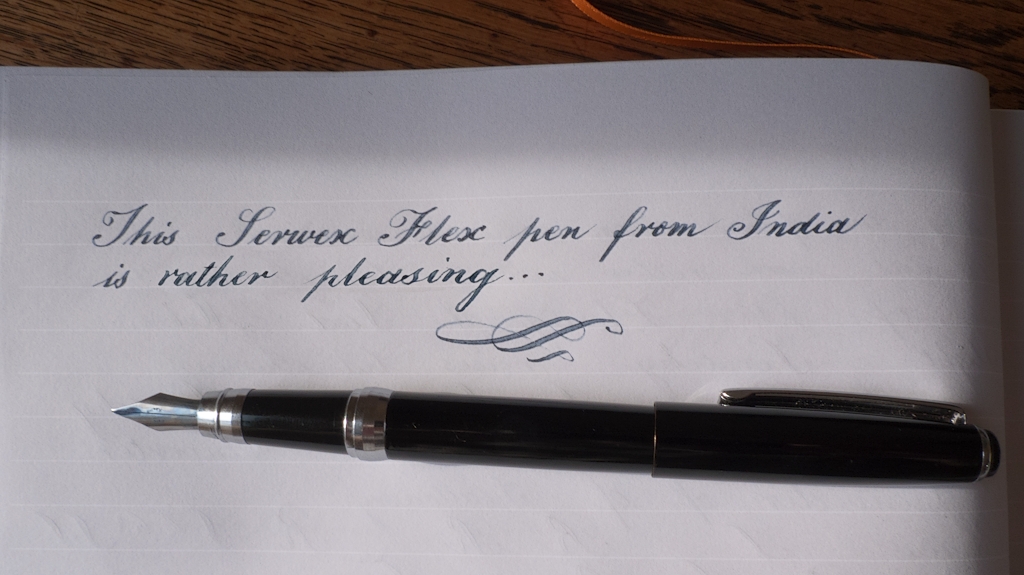 This Serwex Flex pen from India
is rather pleasing...